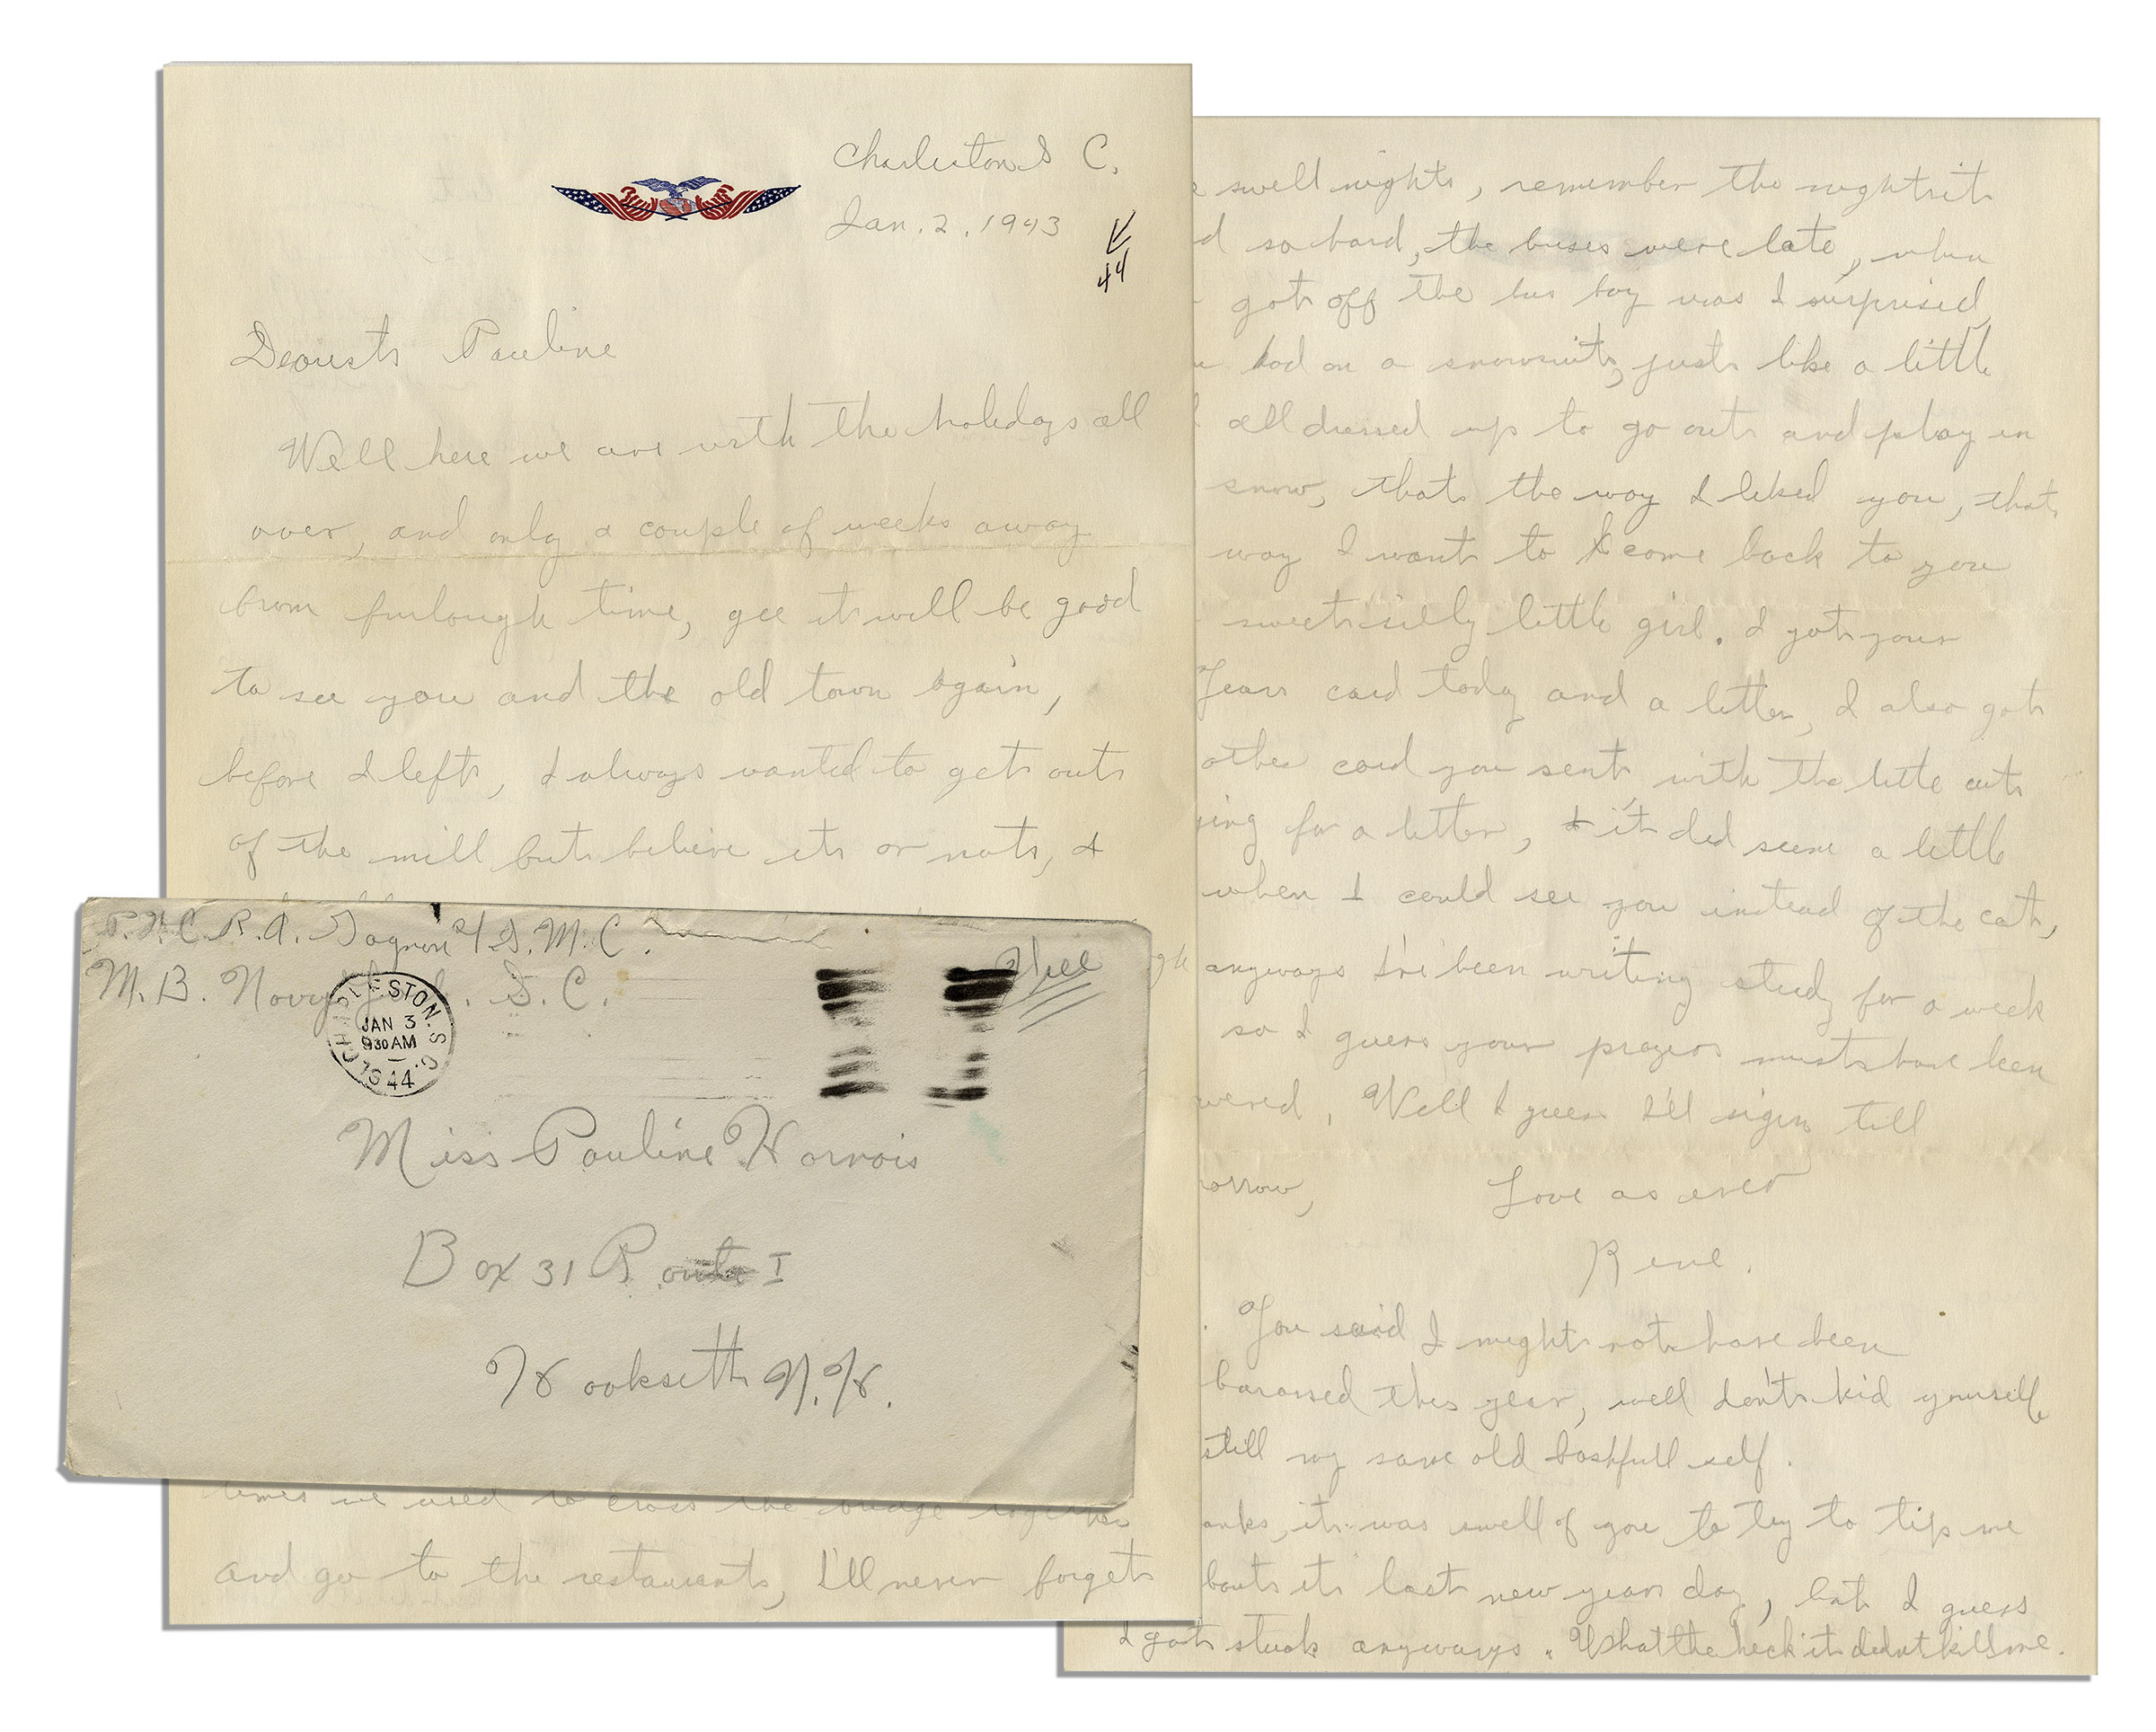 Charleston S C.
Jan. 2, 1943
44
Dearest Pauline
Well here we are with the holidays all
over, and only a couple of weeks away
from furlough time, gee it will be good
to see you and the old town again,
before I left, I always wanted to get out
of the mill but believe it or not, I
times we used to cross the bridge together
and go to the restaurant, I'll never forget
P.F.C. R.A. Gagnon U.S.M.C.
M.B. Navy Yd. S.C.
Free
CHARLESTON, S.C.
JAN 3
930 AM
1944
Miss Pauline Harnois
Box 31 Route I
Hooksett N.H.
swell nights, remember the night it
d so hard, the buses were late, when
got off the bus boy was I surprised,
had on a snowsuit, just like a little
all dressed up to go out and play in
snow, that the way I liked you, that
way I want to come back to you
sweet silly little girl. I got your
Years card today and a letter, I also got
other card you sent with the little cut
ying for a letter, it did seem a little
when I could see you instead of the cat,
anyways I've been writing study for a week
so I guess your prayers must have been
wered, Well I guess I'll sign till
orrow, Love as ever
Rene.
You said I might not have been
barassed this year, well don't kid yourself
still my same old bashfull self.
anks, it was swell of you to try to tip me
bout it last new years day, but I guess
I got stuck anyways. What the heck it didn't kill me.